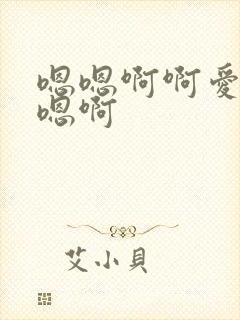 嗯嗯啊啊愛
嗯啊
艾小貝